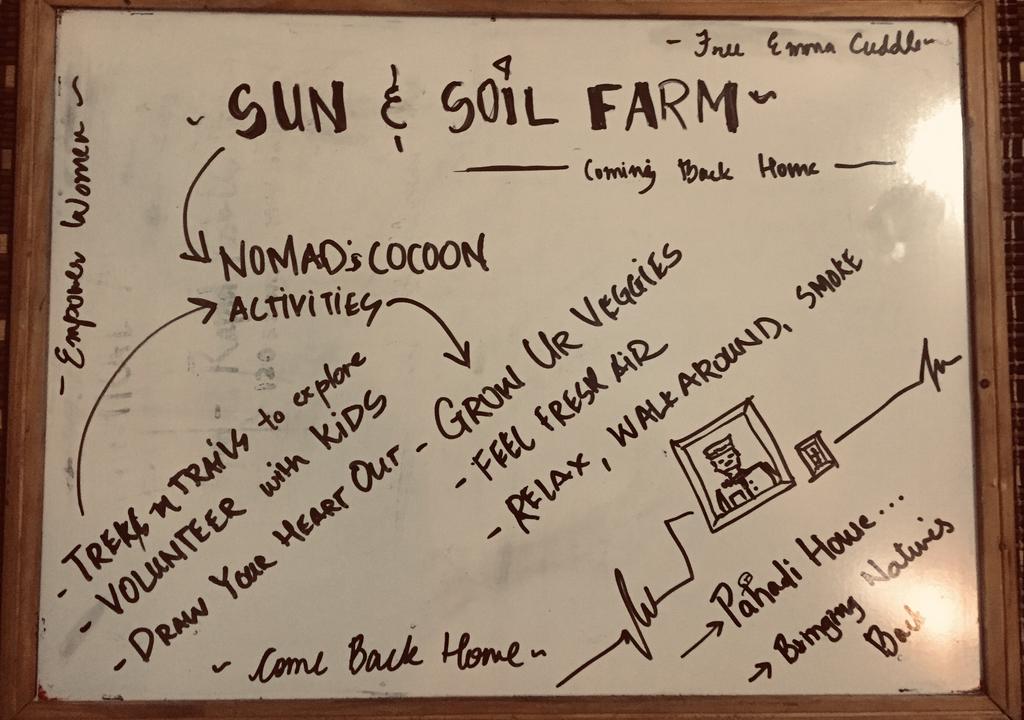 - Free Emma Cuddle~
~ SUN & SOIL FARM ~
Coming Back Home
- Empower Women ~
NOMAD's COCOON
ACTIVITIES
- TREKS n TRAILS to explore
- VOLUNTEER with KIDS
- DRAW YOUR HEART OUT
- GROW UR VEGGIES
- FEEL FRESH AIR
- RELAX, WALK AROUND, SMOKE
~ Come Back Home ~
→ Pahadi House....
→ Bringing Natives
Back